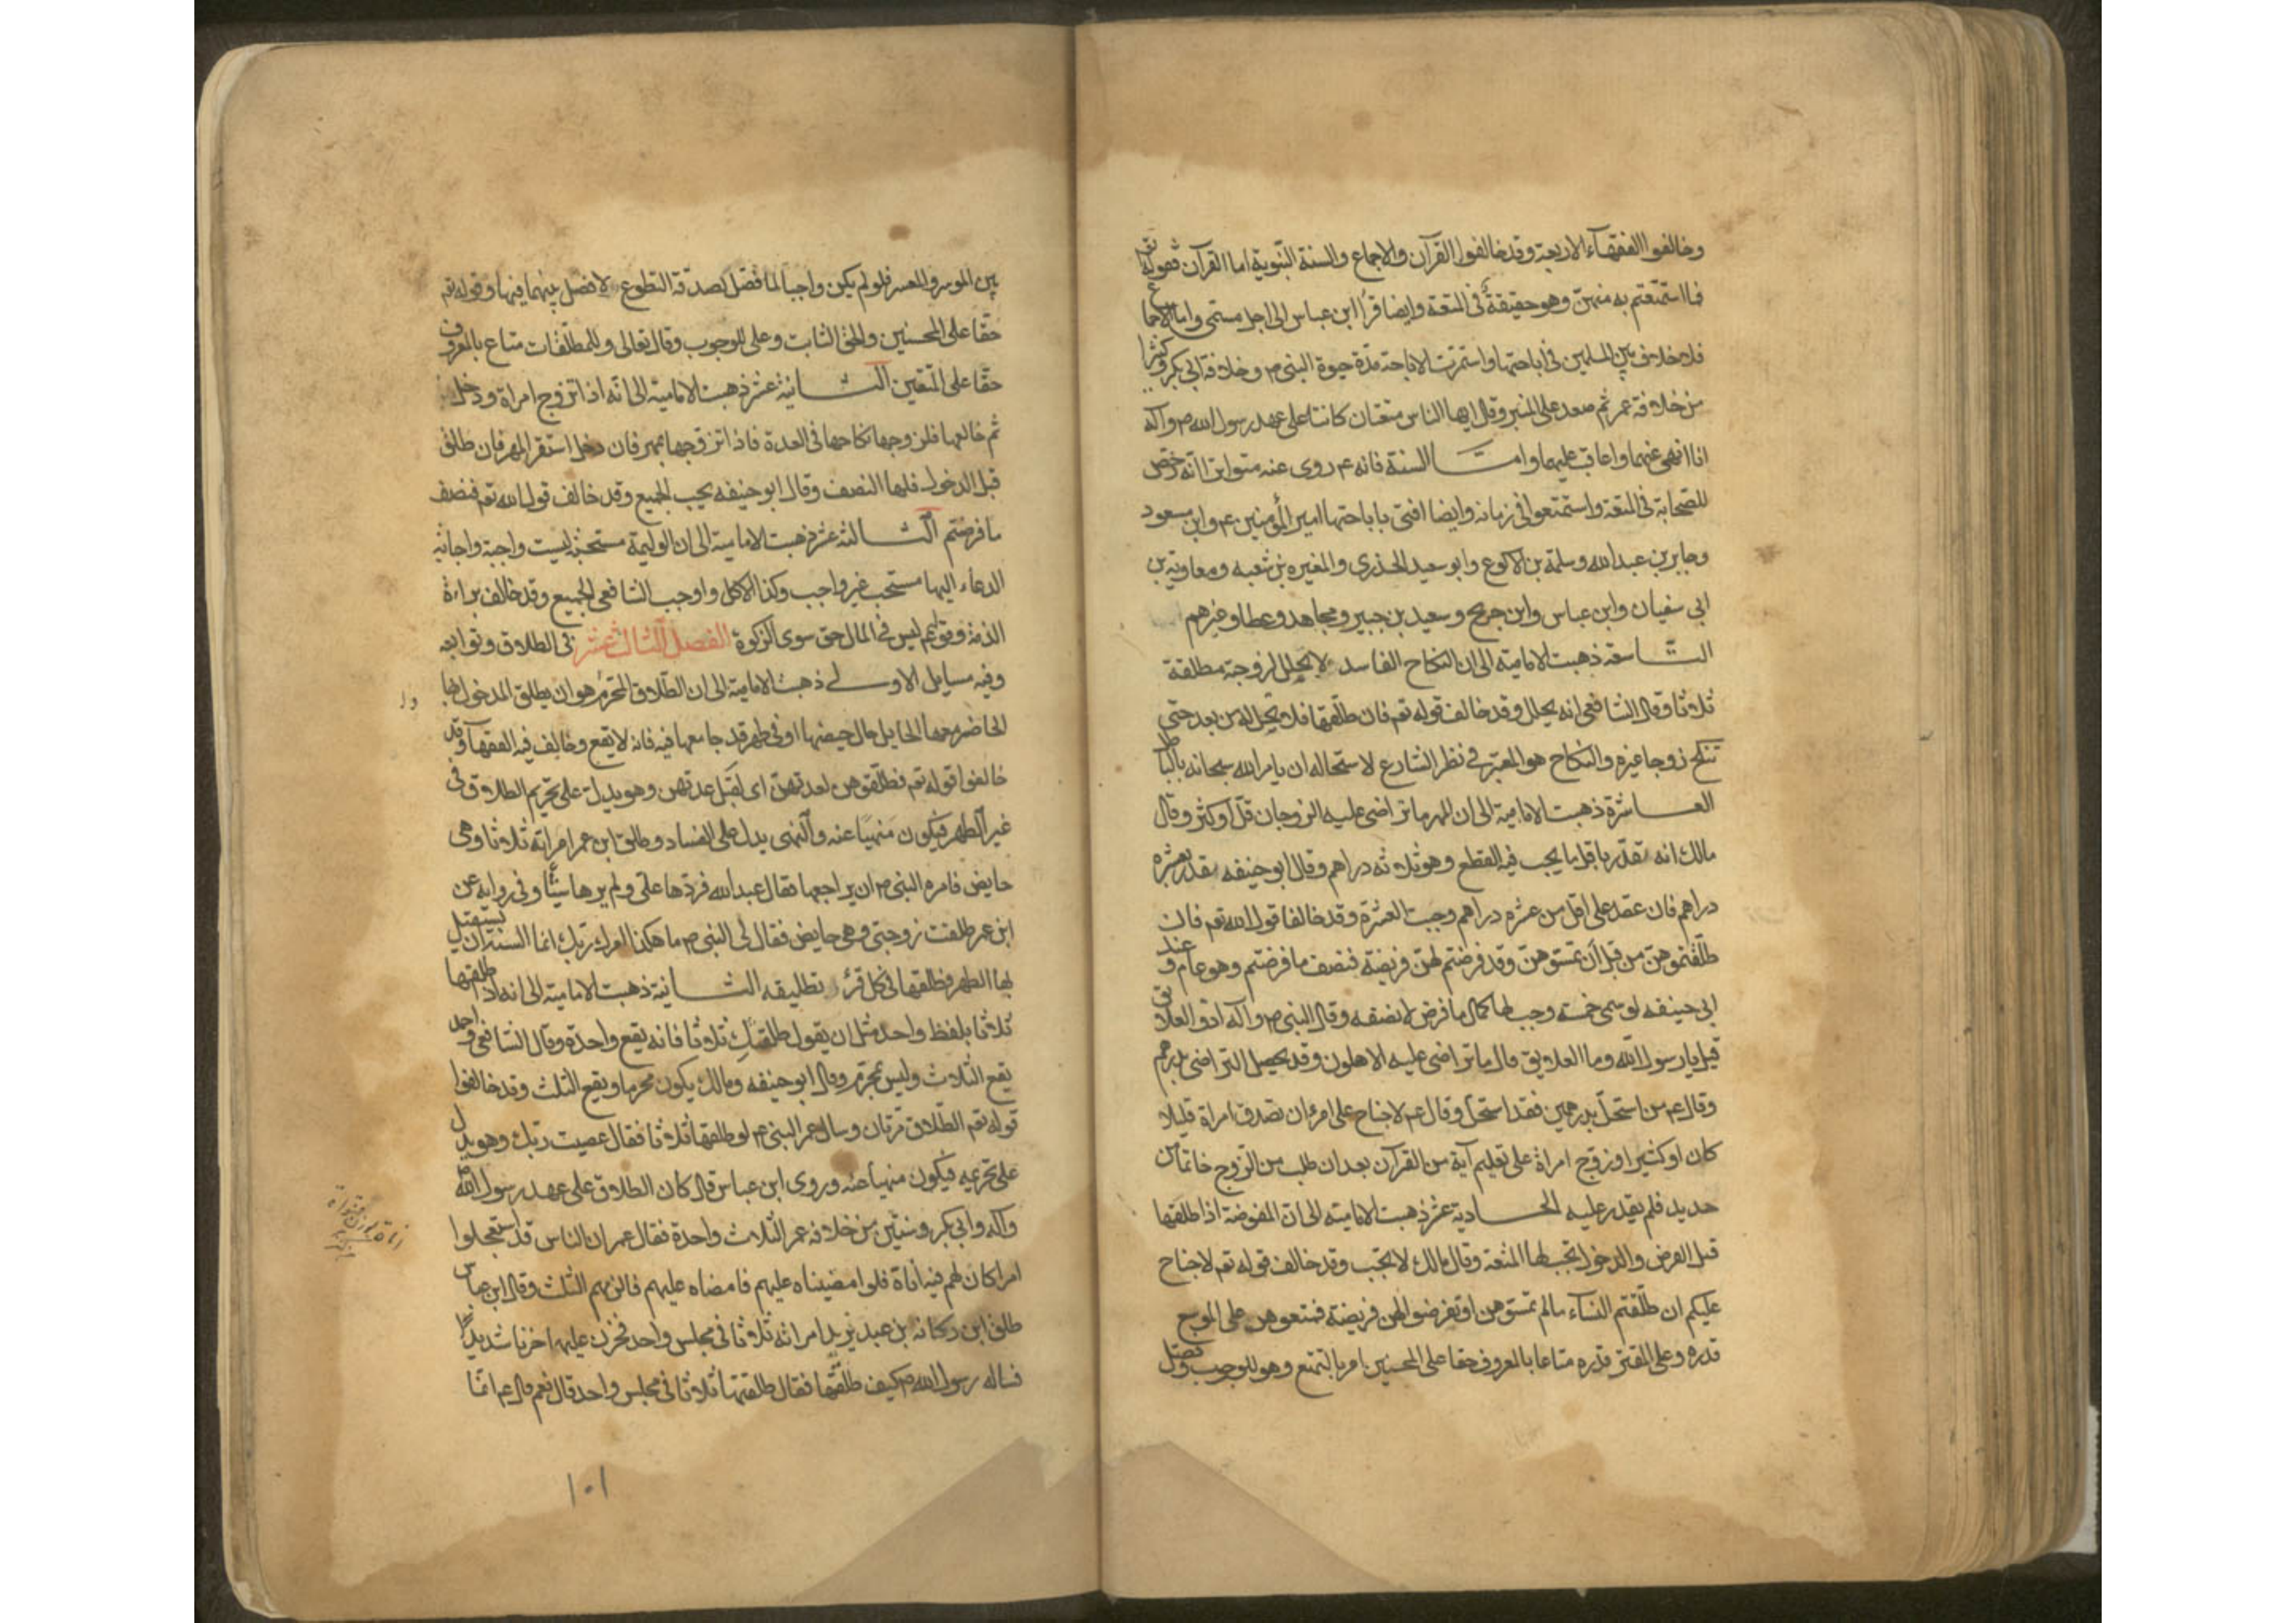 وخالفوا الفقهآء الاربعة وقد خالفوا القرآن والاجماع والسنة النبوية اما القرآن فقوله تع
فما استمتعتم به منهن وهو حقيقةٌ فى المتعة وايضا قرأ ابن عباس الى اجل مسمى واما الاجماع
فلا خلاف بين المسلمين فى اباحتها واستمرت الاباحة مدة حيوة النبى ص وخلافة ابى بكر وكثيرا
من خلافة عمر ثم صعد على المنبر وقال ايها الناس متعتان كانتا على عهد رسول الله ص وآله
انا انهى عنهما واعاقب عليهما وامـا السنة فانه ع روى عنه متواترا انه رخص
للصحابة فى المتعة واستمتعوا فى زمانه وايضا افتى باباحتها امير المؤمنين ع وابن مسعود
وجابر بن عبدالله وسلمة بن الاكوع وابو سعيد الخدرى والمغيره بن شعبه ومعاوية بن
ابى سفيان وابن عباس وابن جريح وسعيد بن جبير ومجاهد وعطا وغيرهم
التاسعة ذهبت الامامية الى ان النكاح الفاسد لا يحلل لزوجة مطلقة
ثلاثا وقال الشافعى انه يحلل وقد خالف قوله تع فان طلقها فلا تحل له من بعد حتى
تنكح زوجا غيره والنكاح هو المعتبر فى نظر الشارع لاستحاله ان يامر الله سبحانه بالباطل
العاشرة ذهبت الامامية الى ان المهر ما تراضى عليه الزوجان قل او كثر وقال
مالك انه يقدر باقل ما يجب فيه القطع وهو ثلاثه دراهم وقال ابو حنيفه يقدر بعشره
دراهم فان عقد على اقل من عشره دراهم وجبت العشرة وقد خالفا قول الله تع فان
طلقتموهن من قبل ان تمسوهن وقد فرضتم لهن فريضة فنصف ما فرضتم وهو عام وعند
ابى حنيفه لو سمى خمسة وجب لها كمال ما فرض لا نصفه وقال النبى ص وآله ادوا العلائق
قيل يا رسول الله وما العلايق قال ما تراضى عليه الاهلون وقد يحصل التراضى بدرهم
وقال ع من استحل بدرهمين فقد استحل وقال ع لا جناح على امرء ان تصدق امراة قليلا
كان او كثيرا وزوج امراة على تعليم آية من القرآن بعد ان طلب من الزوج خاتما من
حديد فلم يقدر عليه الحادية عشر ذهبت الامامية الى ان المفوضة اذا طلقها
قبل الفرض والدخول تجب لها المتعة وقال مالك لا تجب وقد خالف قوله تع لا جناح
عليكم ان طلقتم النسآء مالم تمسوهن او تفرضوا لهن فريضة فمتعوهن على الموسع
قدره وعلى المقتر قدره متاعا بالمعروف حقا على المحسنين امر بالتمتع وهو للوجوب وفصل
بين الموسر والمعسر فلو لم يكن واجبا لما فصل كصدقة التطوع لا فصل بينهما فيها وقوله تع
حقا على المحسنين والحق الثابت وعلى للوجوب وقال تعالى وللمطلقات متاع بالمعروف
حقا على المتقين الثانية عشر ذهبت الامامية الى انه اذا تزوج امراة ودخل
ثم خالعها فلزوجها نكاحها فى العدة فاذا تزوجها بمهر فان دخل استقر المهر فان طلق
قبل الدخول فلها النصف وقال ابو حنيفه يجب الجميع وقد خالف قول الله تع فنصف
ما فرضتم الثالثة عشر ذهبت الامامية الى ان الوليمة مستحبة ليست واجبة واجابة
الدعاء اليها مستحب غير واجب وكذا الاكل واوجب الشافعى الجميع وقد خالف براءة
الذمة وقوله ع ليس فى المال حق سوى الزكوة الفصل الثالث عشر فى الطلاق وتوابعه
وفيه مسايل الاولى ذهبت الامامية الى ان الطلاق المحرم هو ان يطلق المدخول بها
الحاضر معها الحايل حال حيضها او فى طهر قد جامعها فيه فانه لا يقع وخالف فيه الفقهآ وقد
خالفوا قوله تع فطلقوهن لعدتهن اى لقبل عدتهن وهو يدل على تحريم الطلاق فى
غير الطهر فيكون منهيا عنه والنهى يدل على الفساد وطلق ابن عمر امراته ثلاثا وهى
حايض فامره النبى ص ان يراجعها فقال عبدالله فردها على ولم يرها شيئا وفى رواية عن
ابن عمر طلقت زوجتى وهى حايض فقال لى النبى ص ما هكذا امرك ربك انما السنة ان يستقبل
بها الطهر فطلقها فى كل قرء تطليقه الثانية ذهبت الامامية الى انه اذا طلقها
ثلاثا بلفظ واحد مثل ان يقول طلقتكِ ثلاثا فانه يقع واحدة وقال الشافعى واحمد
يقع الثلاث وليس بمحرم وقال ابو حنيفه ومالك يكون محرما ويقع الثلث وقد خالفوا
قوله تع الطلاق مرتان وسال عمر النبى ع لو طلقها ثلاثا فقال عصيت ربك وهو يدل
على تحريمه فيكون منهيا عنه وروى ابن عباس قال كان الطلاق على عهد رسول الله ص
وآله وابى بكر وسنتين من خلافه عمر الثلاث واحدة فقال عمر ان الناس قد استعجلوا
امرا كان لهم فيه اناة فلو امضيناه عليهم فامضاه عليهم فالزمهم الثلث وقال ابن عباس
طلق ابن ركانه بن عبد يزيد امراته ثلاثا فى مجلس واحد فحزن عليها حزنا شديدا
فساله رسول الله ص كيف طلقتها فقال طلقتها ثلاثا فى مجلس واحد قال نعم قال ع انما
١٠١